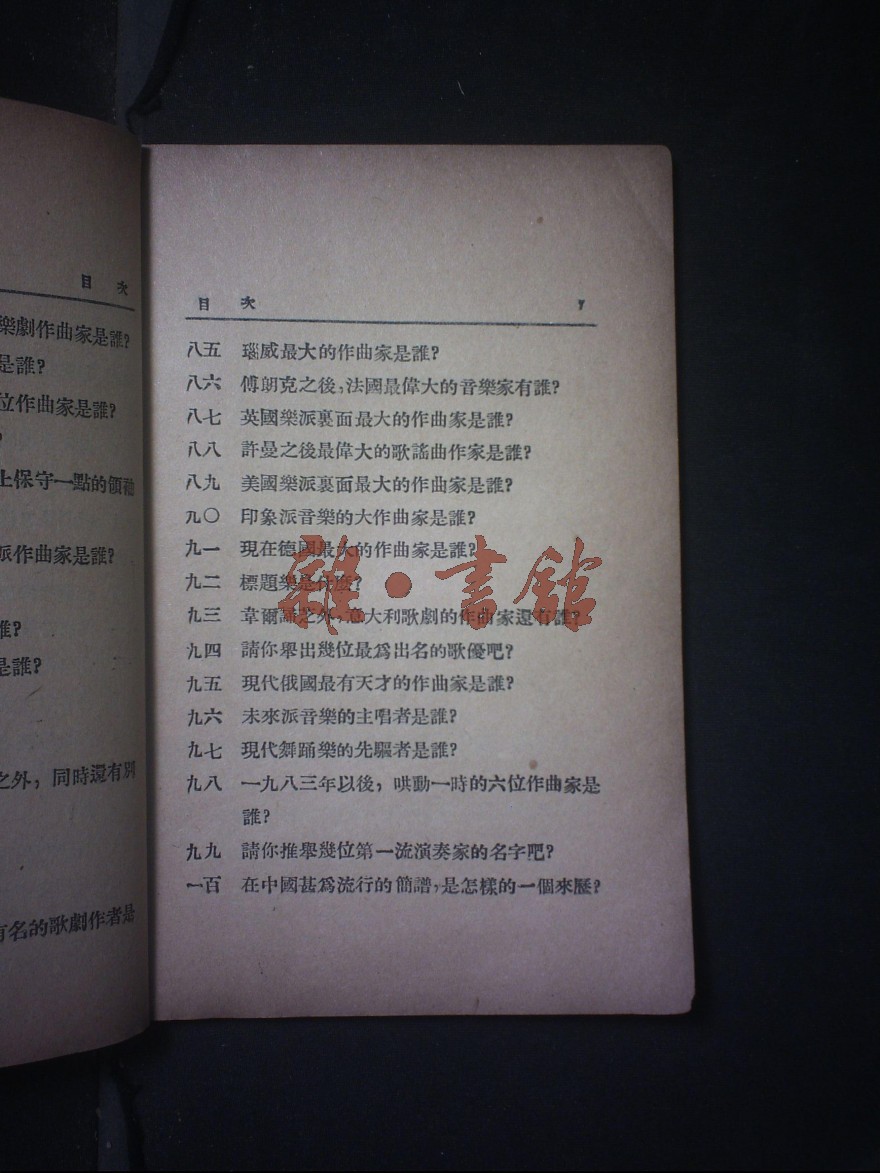 目 次
樂劇作曲家是誰?
是誰?
位作曲家是誰?
?
上保守一點的領袖
派作曲家是誰?
誰?
是誰?
之外，同時還有別
有名的歌劇作者是
目 次 7
八五 瑙威最大的作曲家是誰?
八六 傅朗克之後，法國最偉大的音樂家有誰?
八七 英國樂派裏面最大的作曲家是誰?
八八 許曼之後最偉大的歌謠曲作家是誰?
八九 美國樂派裏面最大的作曲家是誰?
九〇 印象派音樂的大作曲家是誰?
九一 現在德國最大的作曲家是誰?
九二 標題樂是什麼?
九三 韋爾諦之外，意大利歌劇的作曲家還有誰?
九四 請你舉出幾位最爲出名的歌優吧?
九五 現代俄國最有天才的作曲家是誰?
九六 未來派音樂的主唱者是誰?
九七 現代舞踊樂的先驅者是誰?
九八 一九八三年以後，哄動一時的六位作曲家是
誰?
九九 請你推舉幾位第一流演奏家的名字吧?
一百 在中國甚爲流行的簡譜，是怎樣的一個來歷?
雜·書館